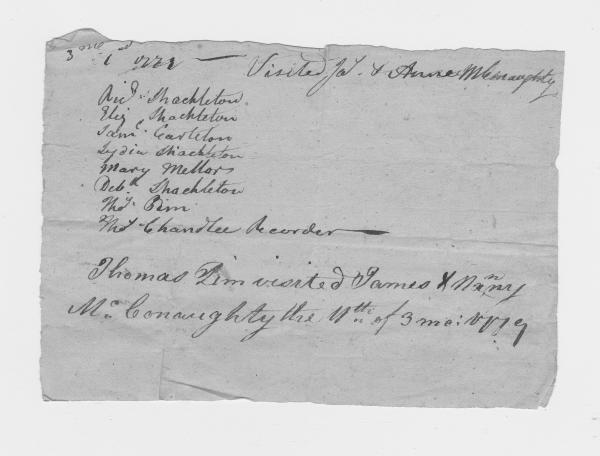 3mo 1st 1779 — Visited Jas. & Anne McConaughty
Richd. Shackleton
Eliz. Shackleton
Saml. Carleton
Lydia Shackleton
Mary Mellor
Debh. Shackleton
Thos. Pim
Thos. Chandlee Recorder —
Thomas Pim visited James & Nanny
Mc. Conaughty the 11th of 3 mo: 1779